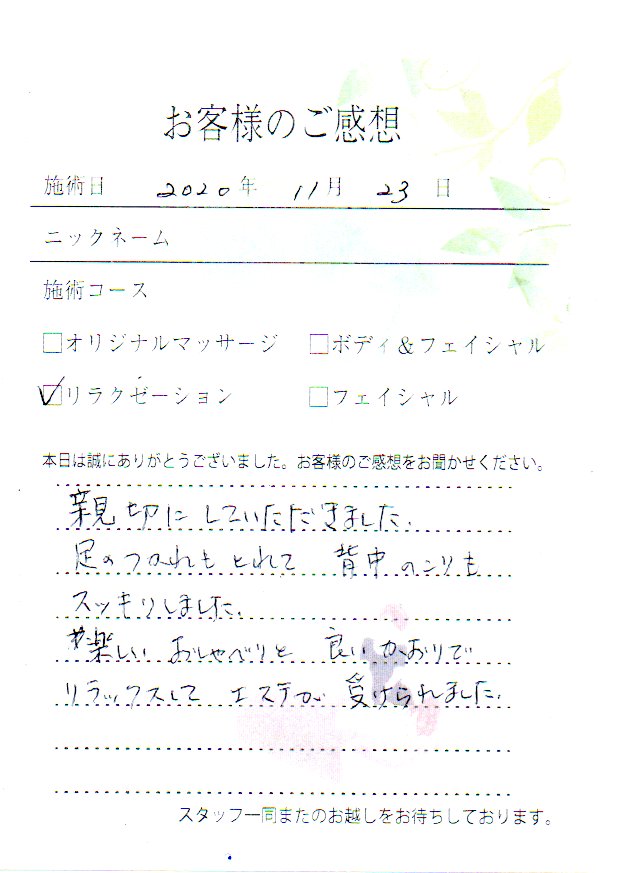 お客様のご感想
施術日 2020年 11月 23日
ニックネーム
施術コース
□オリジナルマッサージ □ボディ&フェイシャル
☑リラクゼーション □フェイシャル
本日は誠にありがとうございました。お客様のご感想をお聞かせください。
親切にしていただきました.
足のつかれもとれて 背中のこりも
スッキリしました.
楽しい おしゃべりと 良い かおりで
リラックスして エステが 受けられました.
スタッフ一同またのお越しをお待ちしております。